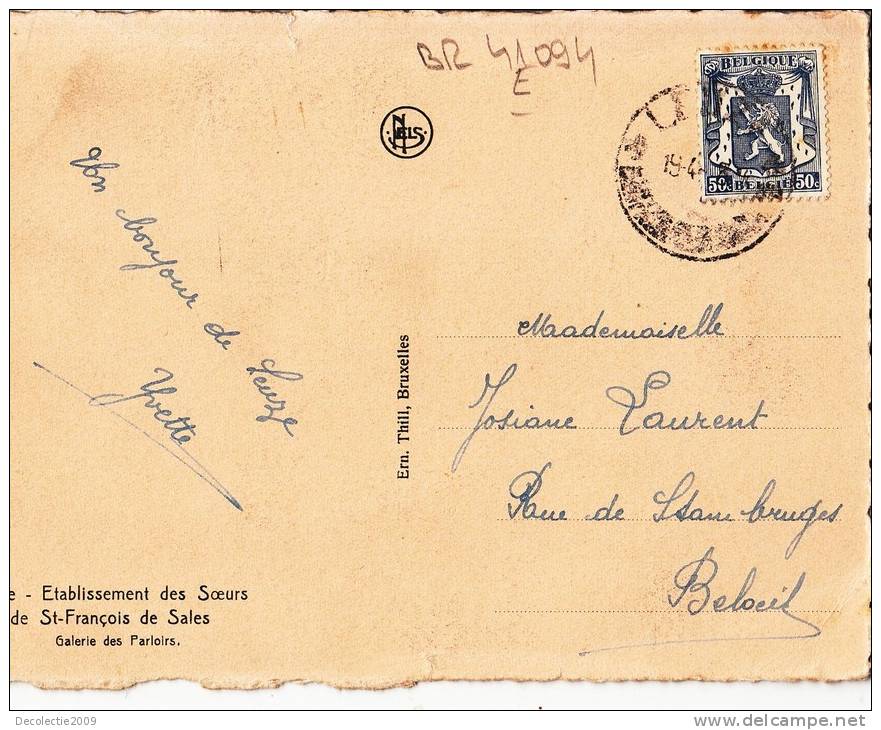 BR 41094
E
NELS
BELGIQUE
50c BELGIE 50c
19-4
Un bonjour de Leuze
Yvette
Ern. Thill, Bruxelles
Maademoiselle
Josiane Laurent
Rue de Stambruges
Beloeil
e - Etablissement des Sœurs
de St-François de Sales
Galerie des Parloirs.
Decolectie2009
www.delcampe.net